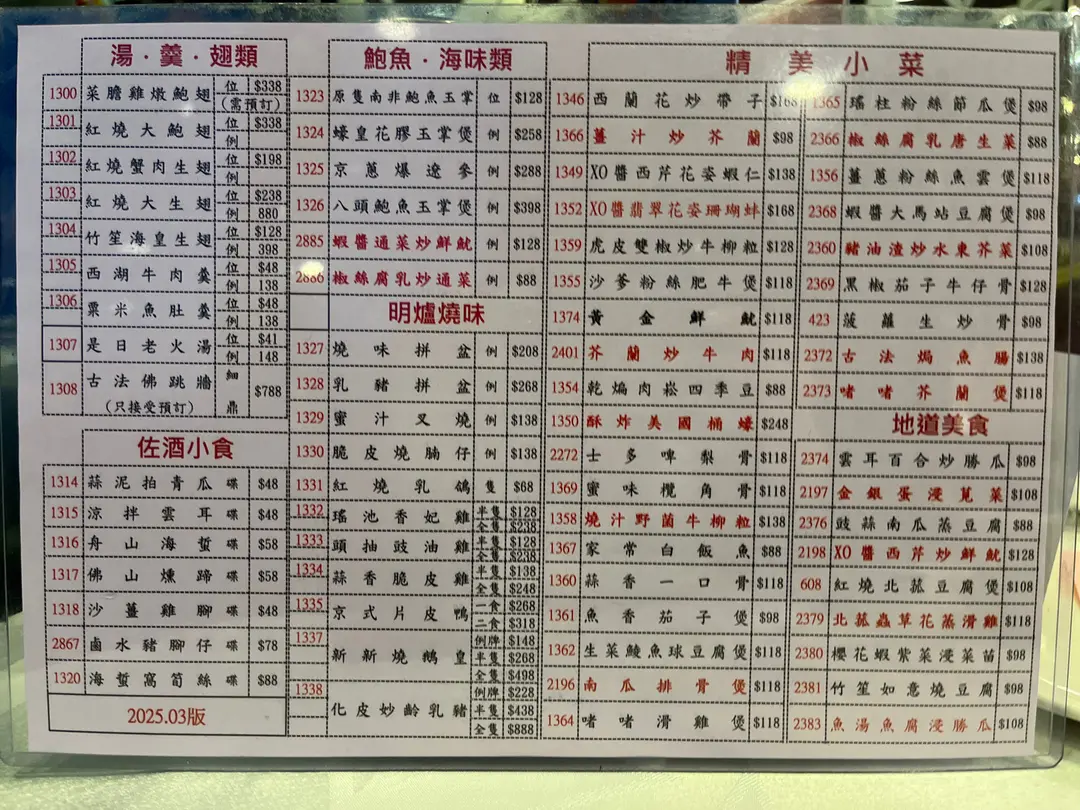 湯·羹·翅類
1300 菜膽雞燉鮑翅 位 $338 (需預訂)
1301 紅燒大鮑翅 位 $338 例
1302 紅燒蟹肉生翅 位 $198 例
1303 紅燒大生翅 位 $238 例 880
1304 竹笙海皇生翅 位 $128 例 398
1305 西湖牛肉羹 位 $48 例 138
1306 粟米魚肚羹 位 $48 例 138
1307 是日老火湯 位 $41 例 148
1308 古法佛跳牆 (只接受預訂) 細鼎 $788
佐酒小食
1314 蒜泥拍青瓜 碟 $48
1315 涼拌雲耳 碟 $48
1316 舟山海蜇 碟 $58
1317 佛山燻蹄 碟 $58
1318 沙薑雞腳 碟 $48
2867 鹵水豬腳仔 碟 $78
1320 海蜇窩筍絲 碟 $88
2025.03版
鮑魚·海味類
1323 原隻南非鮑魚玉掌 位 $128
1324 蠔皇花膠玉掌煲 例 $258
1325 京蔥爆遼參 例 $288
1326 八頭鮑魚玉掌煲 例 $398
2885 蝦醬通菜炒鮮魷 例 $128
2886 椒絲腐乳炒通菜 例 $88
明爐燒味
1327 燒味拼盆 例 $208
1328 乳豬拼盆 例 $268
1329 蜜汁叉燒 例 $138
1330 脆皮燒腩仔 例 $138
1331 紅燒乳鴿 隻 $68
1332 瑤池香妃雞 半隻 $128 全隻 $238
1333 頭抽豉油雞 半隻 $128 全隻 $238
1334 蒜香脆皮雞 半隻 $138 全隻 $248
1335 京式片皮鴨 一食 $268 二食 $318
1337 新新燒鵝皇 例牌 $148 半隻 $268 全隻 $498
1338 化皮妙齡乳豬 例牌 $228 半隻 $438 全隻 $888
精美小菜
1346 西蘭花炒帶子 $168
1366 薑汁炒芥蘭 $98
1349 XO醬西芹花姿蝦仁 $138
1352 XO醬翡翠花姿珊瑚蚌 $168
1359 虎皮雙椒炒牛柳粒 $128
1355 沙爹粉絲肥牛煲 $118
1374 黃金鮮魷 $118
2401 芥蘭炒牛肉 $118
1354 乾煸肉崧四季豆 $88
1350 酥炸美國桶蠔 $248
2272 士多啤梨骨 $118
1369 蜜味欖角骨 $118
1358 燒汁野菌牛柳粒 $138
1367 家常白飯魚 $88
1360 蒜香一口骨 $118
1361 魚香茄子煲 $98
1362 生菜鯪魚球豆腐煲 $118
2196 南瓜排骨煲 $118
1364 啫啫滑雞煲 $118
1365 瑤柱粉絲節瓜煲 $98
2366 椒絲腐乳唐生菜 $88
1356 薑蔥粉絲魚雲煲 $118
2368 蝦醬大馬站豆腐煲 $98
2360 豬油渣炒水東芥菜 $108
2369 黑椒茄子牛仔骨 $128
423 菠蘿生炒骨 $98
2372 古法焗魚腸 $138
2373 啫啫芥蘭煲 $118
地道美食
2374 雲耳百合炒勝瓜 $98
2197 金銀蛋浸莧菜 $108
2376 豉蒜南瓜蒸豆腐 $88
2198 XO醬西芹炒鮮魷 $128
608 紅燒北菰豆腐煲 $108
2379 北菰蟲草花蒸滑雞 $118
2380 櫻花蝦紫菜浸菜苗 $98
2381 竹笙如意燒豆腐 $98
2383 魚湯魚腐浸勝瓜 $108